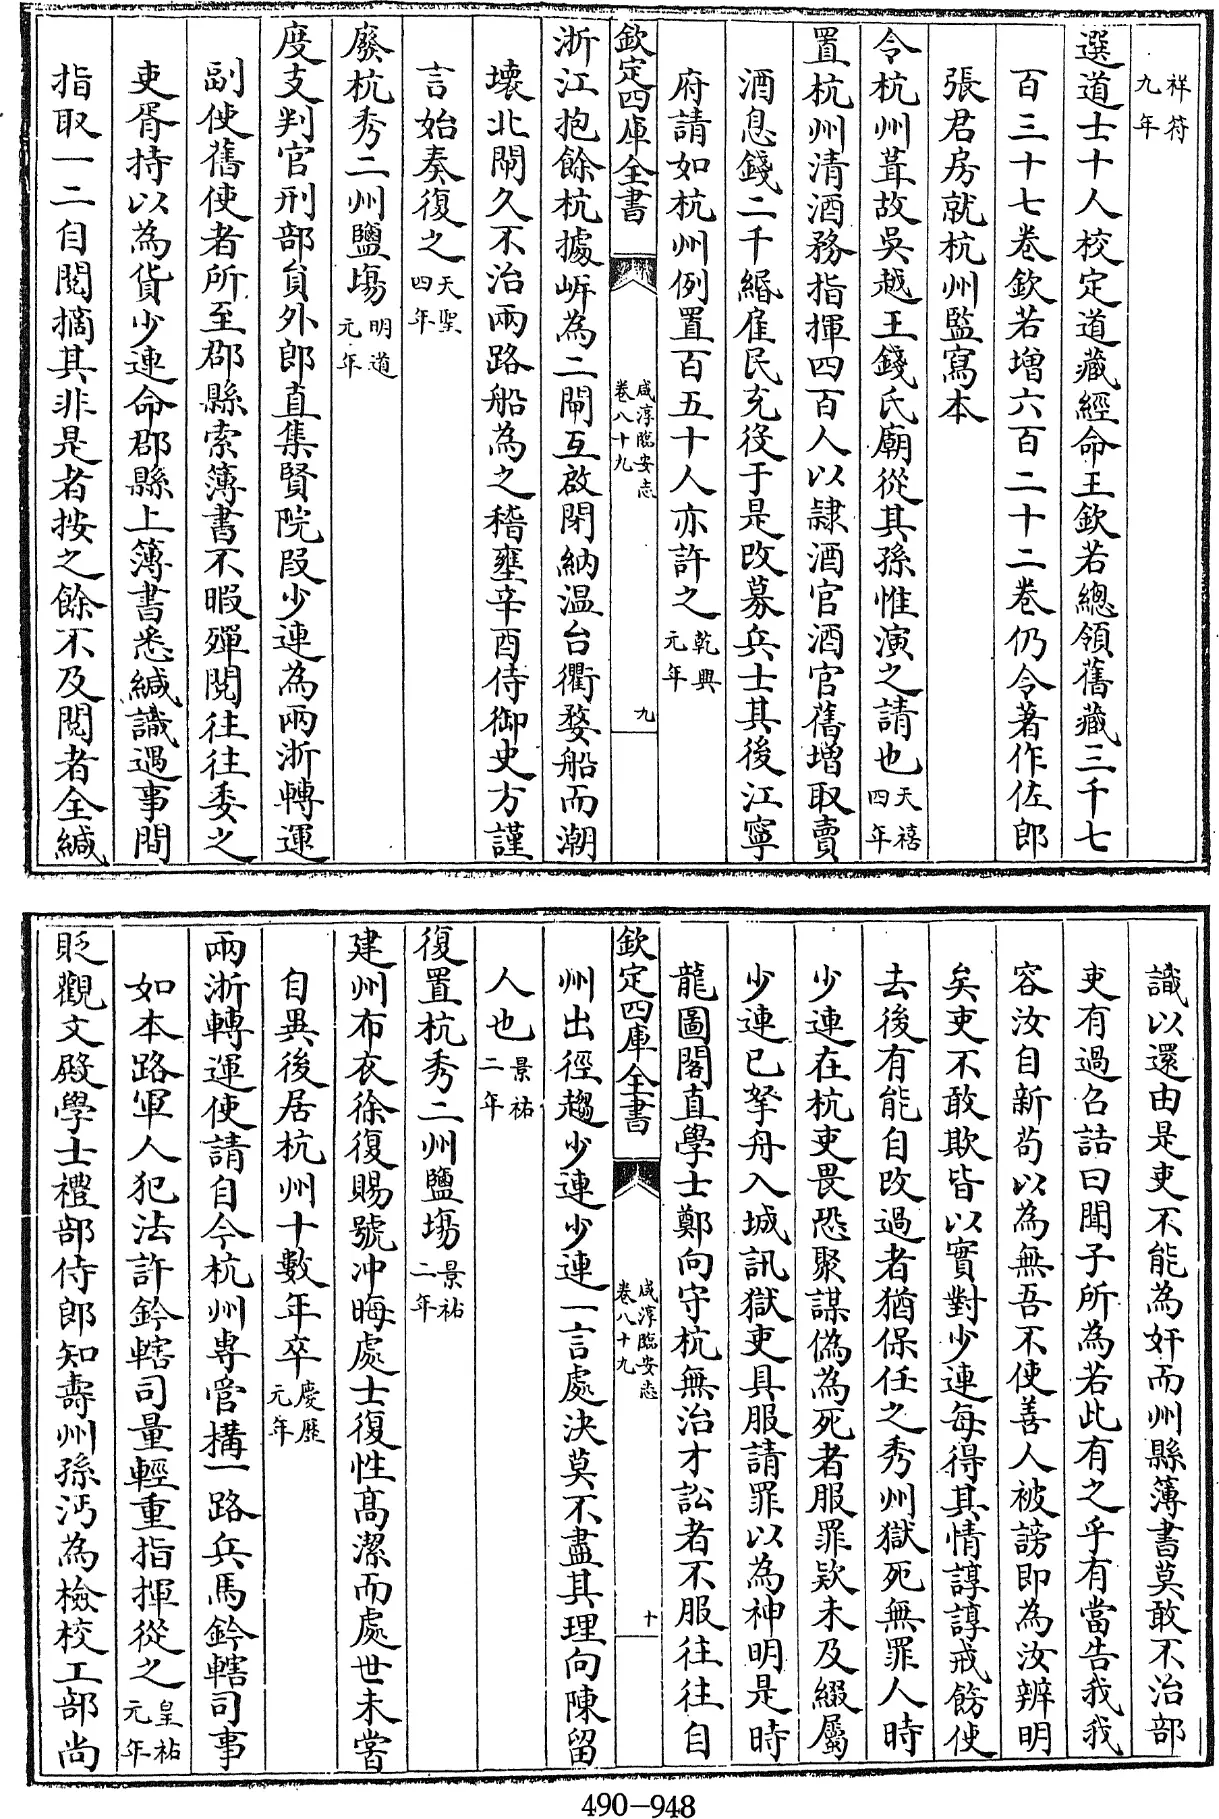 祥符九年
選道士十人校定道藏經命王欽若總領舊藏三千七
百三十七卷欽若增六百二十二卷仍令著作佐郎
張君房就杭州監寫本
令杭州葺故吳越王錢氏廟從其孫惟演之請也天禧四年
置杭州清酒務指揮四百人以隷酒官酒官舊增取賣
酒息錢二千緡雇民充役于是改募兵士其後江寧
府請如杭州例置百五十人亦許之乾興元年
欽定四庫全書 咸淳臨安志卷八十九 九
浙江抱餘杭據㟁為二閘互啟閉納温台衢婺船而潮
壊北閘久不治兩路船為之稽壅辛酉侍御史方謹
言始奏復之天聖四年
廢杭秀二州鹽塲明道元年
度支判官刑部員外郎直集賢院叚少連為兩浙轉運
副使舊使者所至郡縣索簿書不暇殫閱往往委之
吏胥持以為貨少連命郡縣上簿書悉緘識遇事間
指取一二自閱摘其非是者按之餘不及閱者全緘
識以還由是吏不能為奸而州縣簿書莫敢不治部
吏有過召詰曰聞子所為若此有之乎有當告我我
容汝自新苟以為無吾不使善人被謗即為汝辨明
矣吏不敢欺皆以實對少連每得其情諄諄戒飭使
去後有能自改過者猶保任之秀州獄死無罪人時
少連在杭吏畏恐聚謀偽為死者服罪欵未及綴屬
少連已拏舟入城訊獄吏具服請罪以為神明是時
龍圖閣直學士鄭向守杭無治才訟者不服往往自
欽定四庫全書 咸淳臨安志卷八十九 十
州出徑趨少連少連一言處決莫不盡其理向陳留
人也景祐二年
復置杭秀二州鹽塲景祐二年
建州布衣徐復賜號冲晦處士復性髙潔而處世未嘗
自異後居杭州十數年卒慶歷元年
兩浙轉運使請自今杭州專管構一路兵馬鈐轄司事
如本路軍人犯法許鈐轄司量輕重指揮從之皇祐元年
貶觀文殿學士禮部侍郎知壽州孫沔為檢校工部尚
490-948